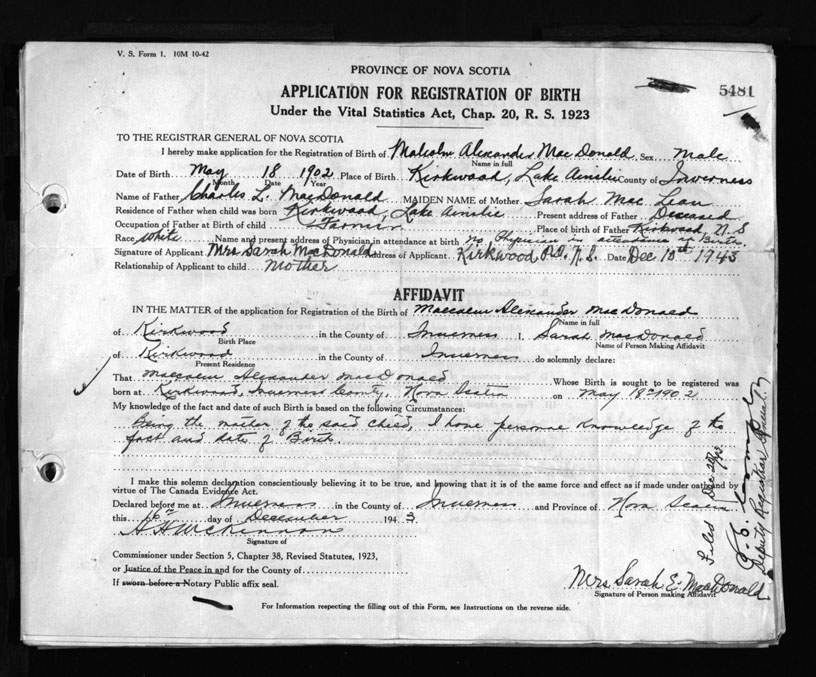 V. S. Form 1. 10M 10-42
PROVINCE OF NOVA SCOTIA
5481
APPLICATION FOR REGISTRATION OF BIRTH
Under the Vital Statistics Act, Chap. 20, R. S. 1923
TO THE REGISTRAR GENERAL OF NOVA SCOTIA
I hereby make application for the Registration of Birth of Malcolm Alexander MacDonald Sex male
Name in full
Date of Birth May 18 1902 Place of Birth Kirkwood, Lake Ainslie County of Inverness
Month Date Year
Name of Father Charles L. MacDonald MAIDEN NAME of Mother Sarah Mac Lean
Residence of Father when child was born Kirkwood, Lake Ainslie Present address of Father Deceased
Occupation of Father at Birth of child Farmer Place of birth of Father Kirkwood, N.S
Race White Name and present address of Physician in attendance at birth No Physician in attendance at Birth.
Signature of Applicant Mrs Sarah MacDonald Address of Applicant Kirkwood N.S. Date Dec 10th 1943
Relationship of Applicant to child Mother
AFFIDAVIT
IN THE MATTER of the application for Registration of the Birth of Malcolm Alexander MacDonald
Name in full
of Kirkwood in the County of Inverness I, Sarah MacDonald
Birth Place Name of Person Making Affidavit
of Kirkwood in the County of Inverness do solemnly declare:
Present Residence
That Malcolm Alexander MacDonald Whose Birth is sought to be registered was
born at Kirkwood, Inverness County, Nova Scotia on May 18th 1902
My knowledge of the fact and date of such Birth is based on the following Circumstances:
Being the mother of the said child, I have personal knowledge of the
fact and date of Birth.
I make this solemn declaration conscientiously believing it to be true, and knowing that it is of the same force and effect as if made under oath and by
virtue of The Canada Evidence Act.
Declared before me at Inverness in the County of Inverness and Province of Nova Scotia
this day of December 1943
McKinnon
Signature of
Commissioner under Section 5, Chapter 38, Revised Statutes, 1923,
or Justice of the Peace in and for the County of
If sworn before a Notary Public affix seal.
Mrs Sarah E. MacDonald
Signature of Person making Affidavit
For Information respecting the filling out of this Form, see Instructions on the reverse side.
Filed Dec
Deputy Registrar General